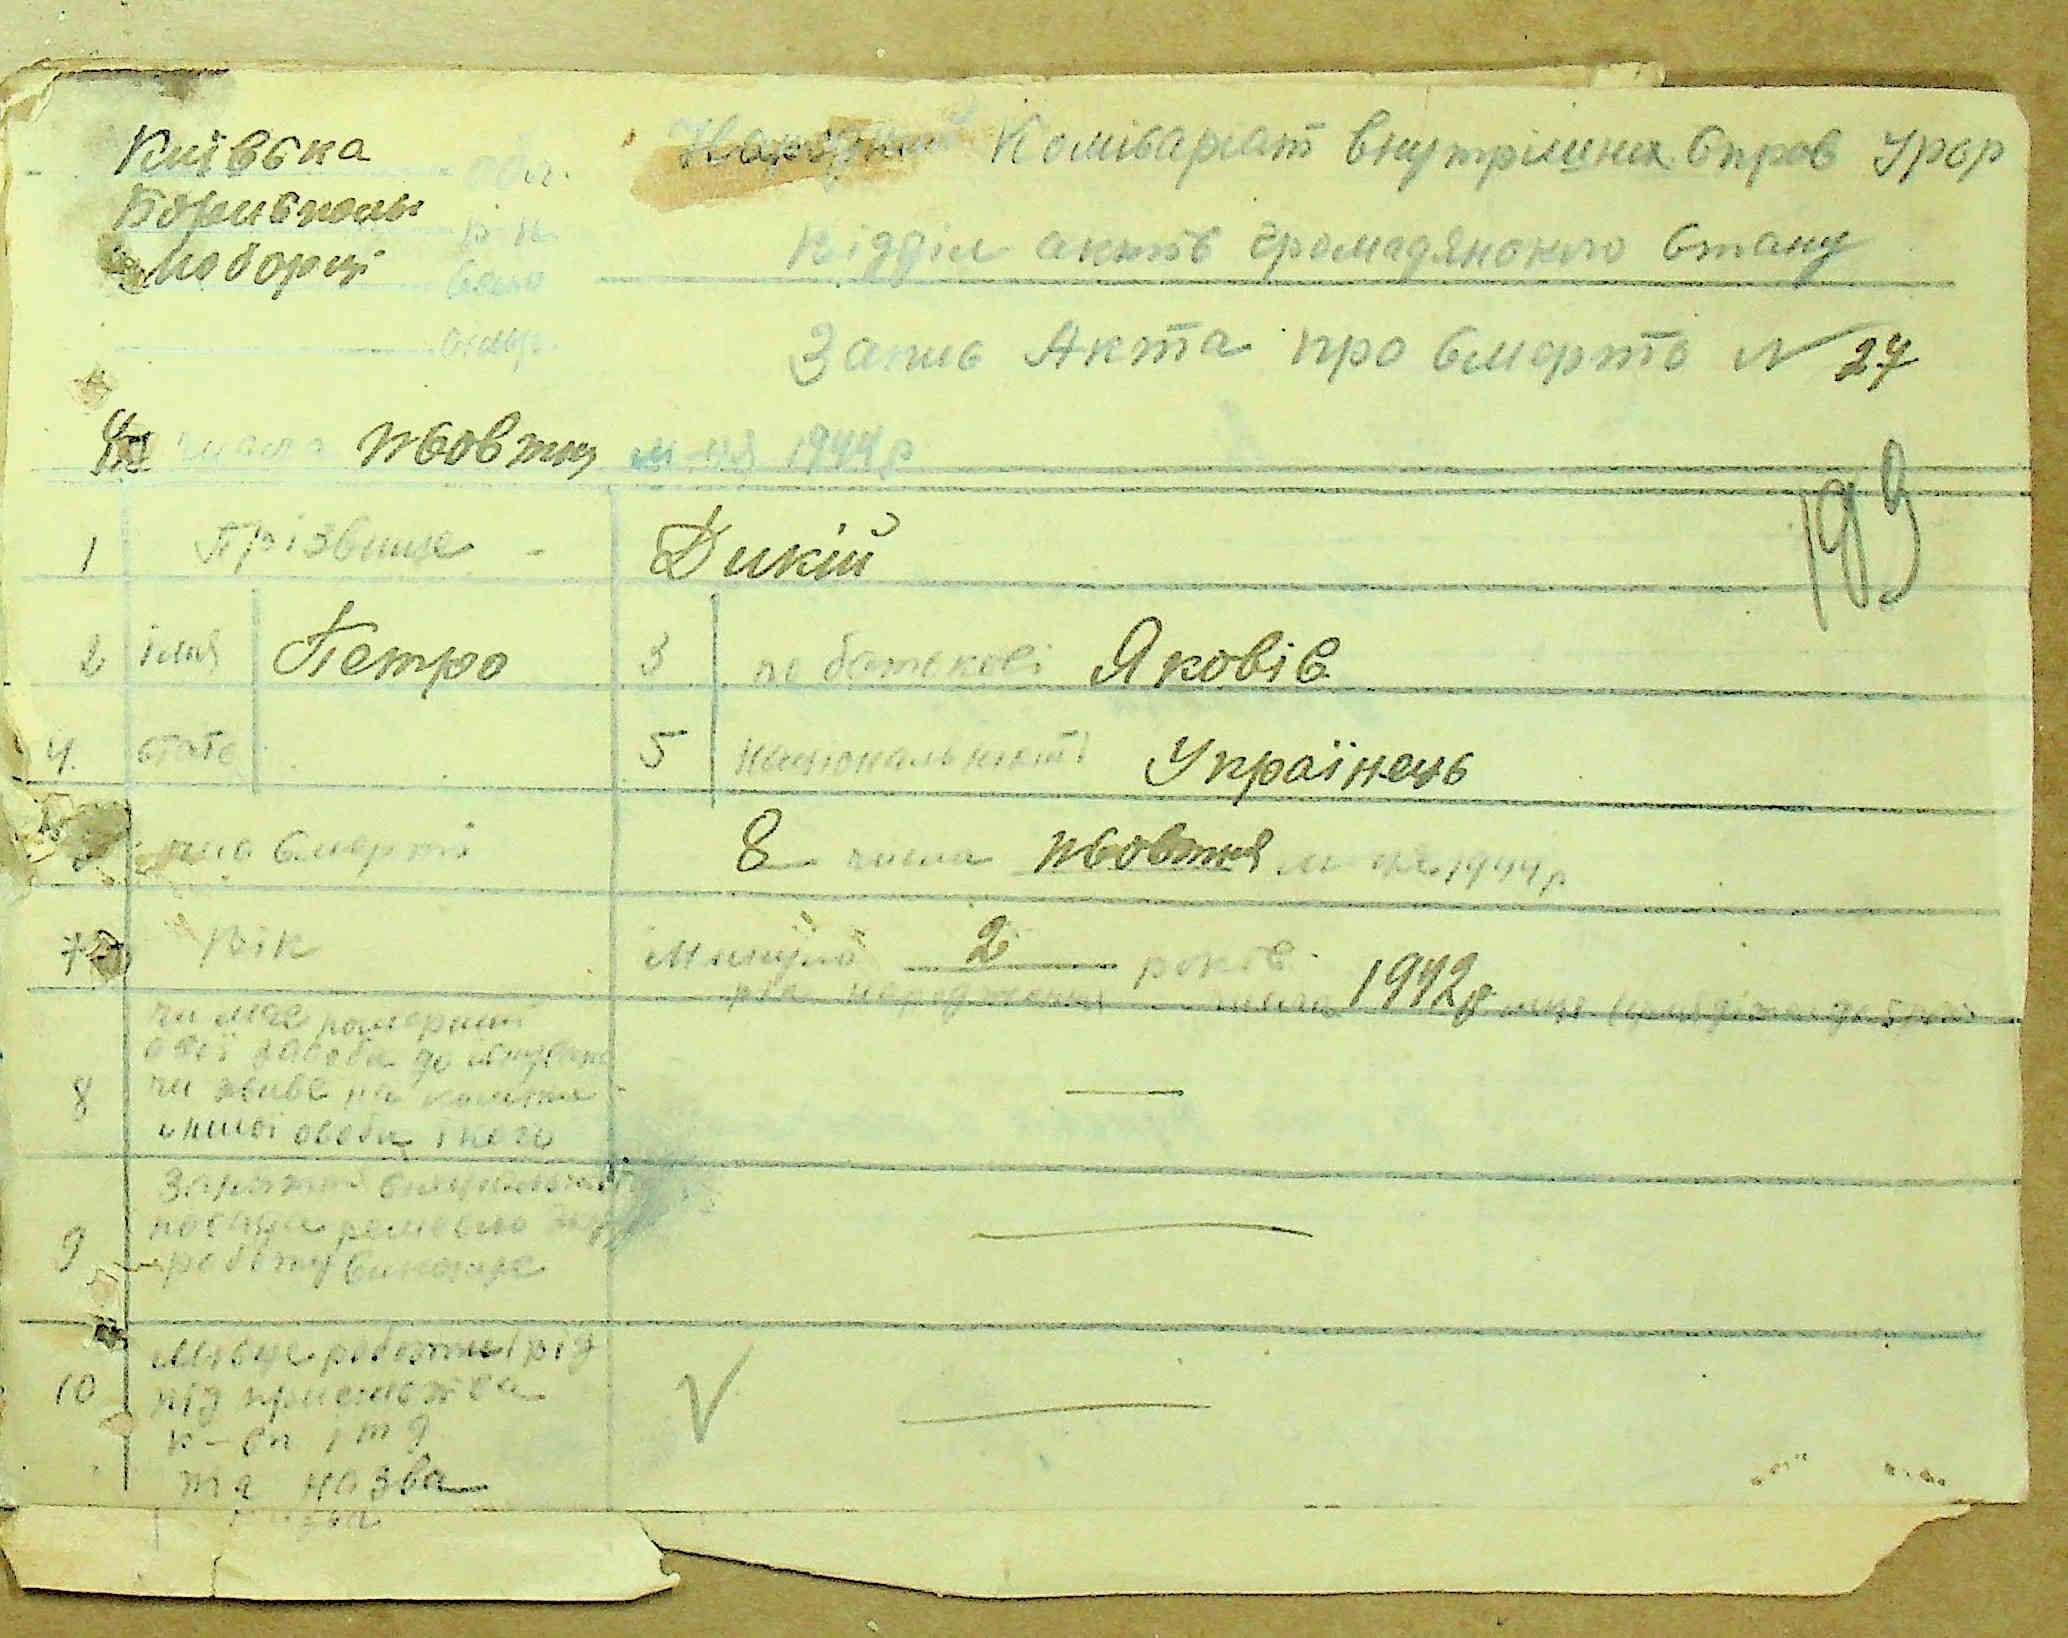 Київська обл.
Бориспольс р-н.
село
селищ.
Народний Комісаріат внутрішніх справ УРСР
Відділ актів громадянского стану
Запис Акта про смерть N 27
числа жовтня м-ця 1944 р
193
1 Прізвище - Дикій
2 Імя Петро 3 по батькові Яковів
4. стать 5 Національність Українець
час смерті 8 числа жовтня м-ця 1944 р
7 Вік Минуло 2 років
рік народження 1942 р
8 чи має померший
свої засоби до існування
чи живе на кошти
іншої особи, і кого
9 Заняття
посада ремесло
роботу виконує
10 Місце роботи рід
підприємства
к-ва і т д
та назва
назва